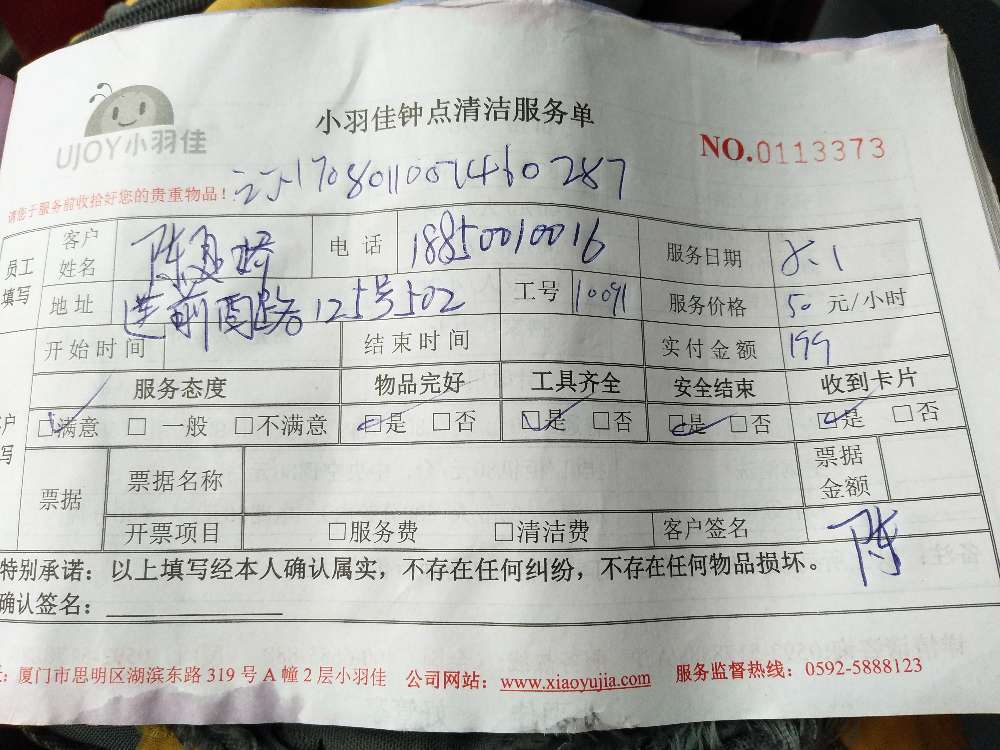 UJOY小羽佳
小羽佳钟点清洁服务单
NO.0113373
请您于服务前收拾好您的贵重物品!
员工填写 客户姓名 陈 电话 18850010016 服务日期 8.1
地址 莲前西路125号502 工号 10091 服务价格 50 元/小时
开始时间 结束时间 实付金额 199
服务态度 物品完好 工具齐全 安全结束 收到卡片
□满意 □一般 □不满意 □是 □否 □是 □否 □是 □否 □是 □否
票据 票据名称 票据金额
开票项目 □服务费 □清洁费 客户签名 陈
特别承诺:以上填写经本人确认属实,不存在任何纠纷,不存在任何物品损坏。
确认签名:
厦门市思明区湖滨东路319号A幢2层小羽佳 公司网站:www.xiaoyujia.com 服务监督热线:0592-5888123